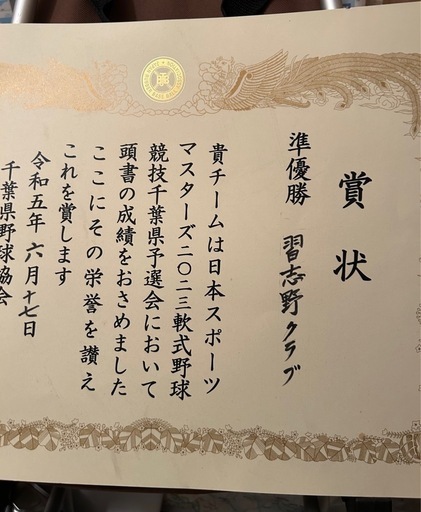 賞状
準優勝 習志野クラブ
貴チームは日本スポーツ
マスターズ二〇二三軟式野球
競技千葉県予選会において
頭書の成績をおさめました
ここにその栄誉を讃え
これを賞します
令和五年六月十七日
千葉県野球協会